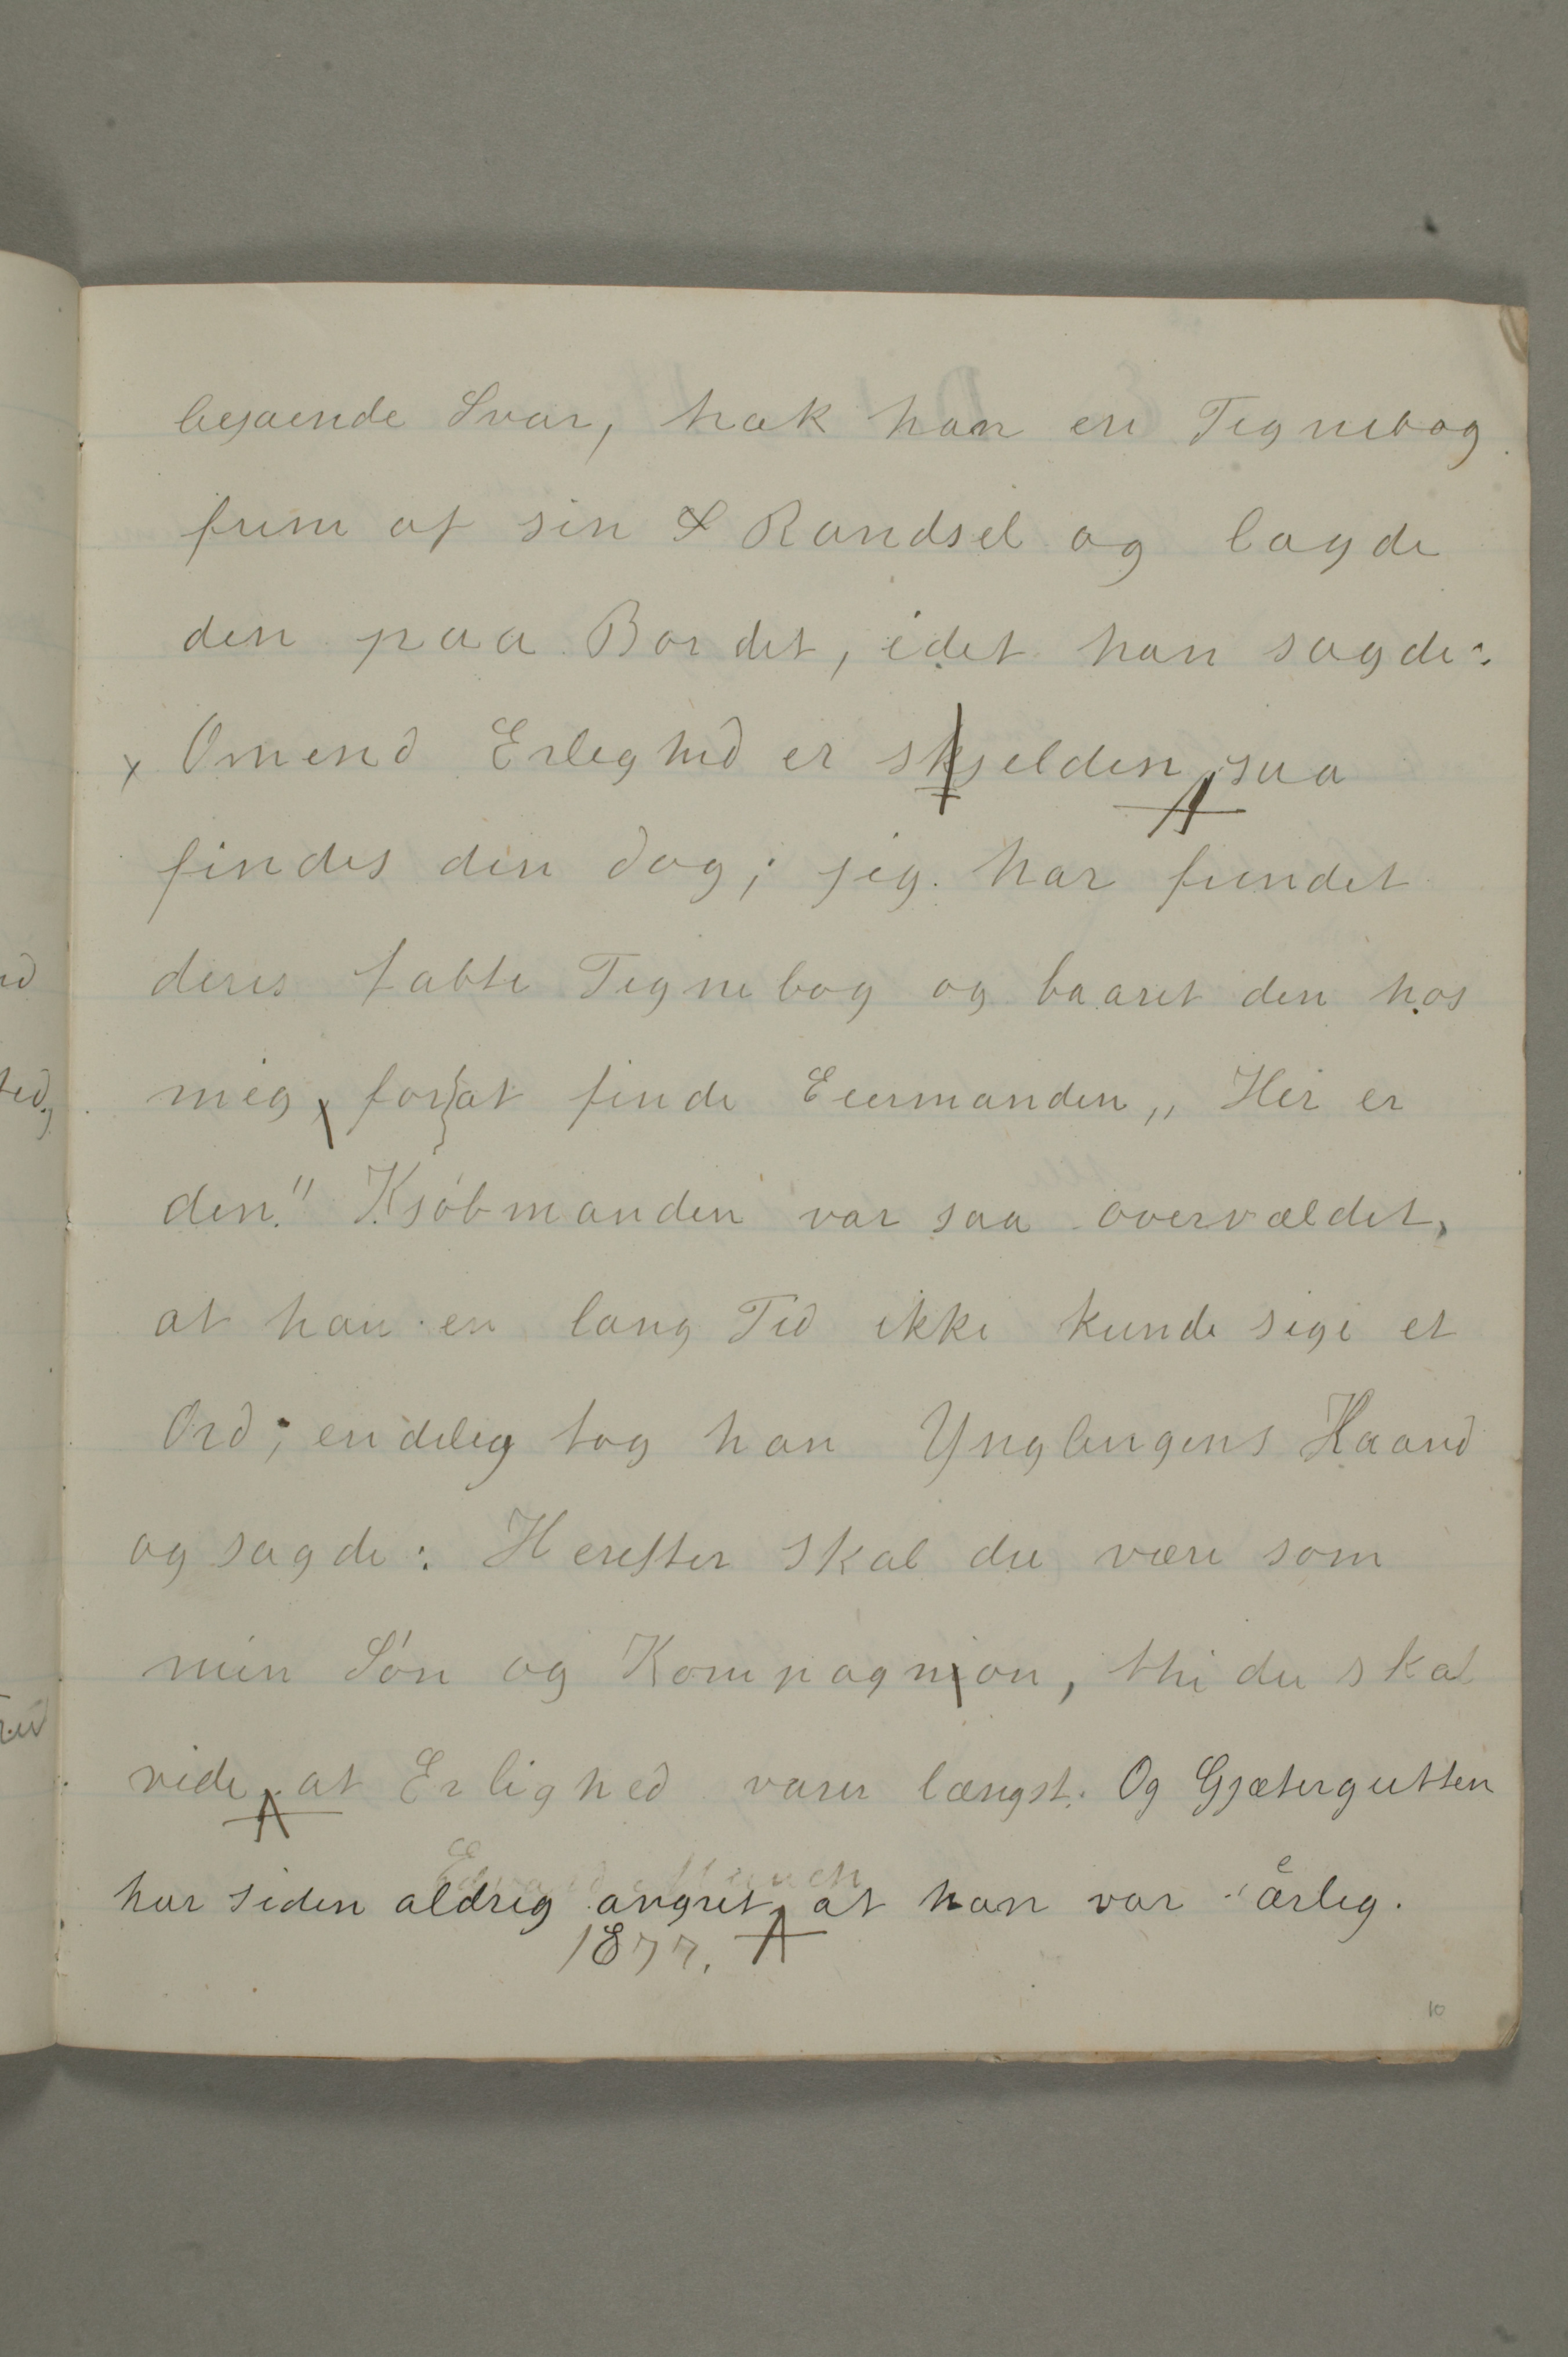 bejaende Svar, trak han en Tegnebog
frem af sin Randsel og lagde
den paa Bordet, idet han sagde:
x Omend Erleghed er skjelden, saa
findes den dog; jeg har fundet
deres tabte Tegnebog og baaret den hos
mig, for at finde Eiermanden, „Her er
den." Kjöbmanden var saa overvældet,
at han en lang Tid ikke kunde sige et
Ord; endeleg tog han Ynglingens Haand
og sagde: Herefter skal du være som
min Sön og Kompagnion, thi du skal
vide, at Erlighed varer længst. Og Gjætergutten
Edvard Munch
har siden aldrig angret, at han var ærlig.
1877.
10